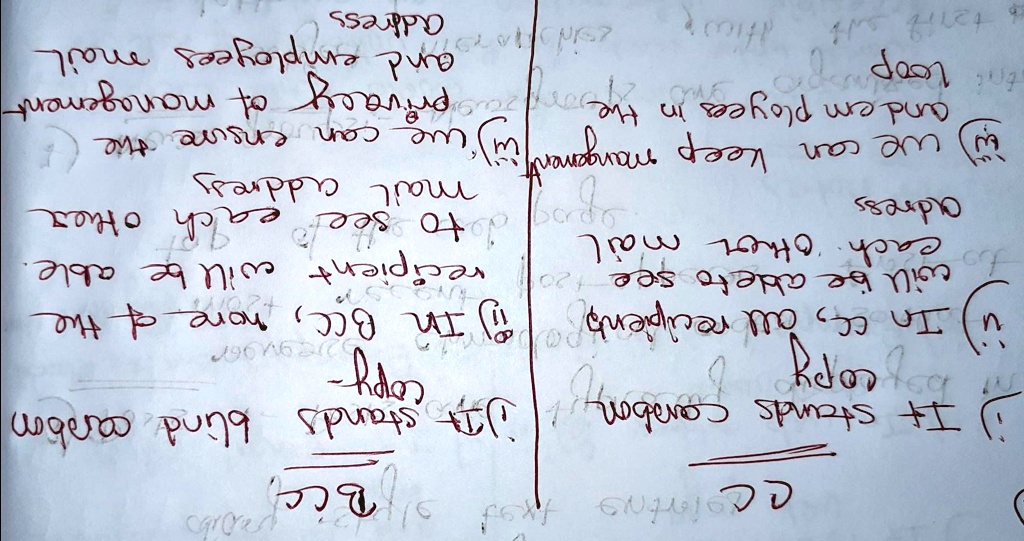 CC
i) It stands carbon
copy
ii) In CC, all recipients
will be able to see
each other mail
address
iii) we can keep mangement
and employees in the
loop
BCC
i) It stands blind carbon
copy-
ii) In BCC, none of the
recipient will be able
to see each other
mail address
iii) we can ensure the
privacy of management
and employees mail
address